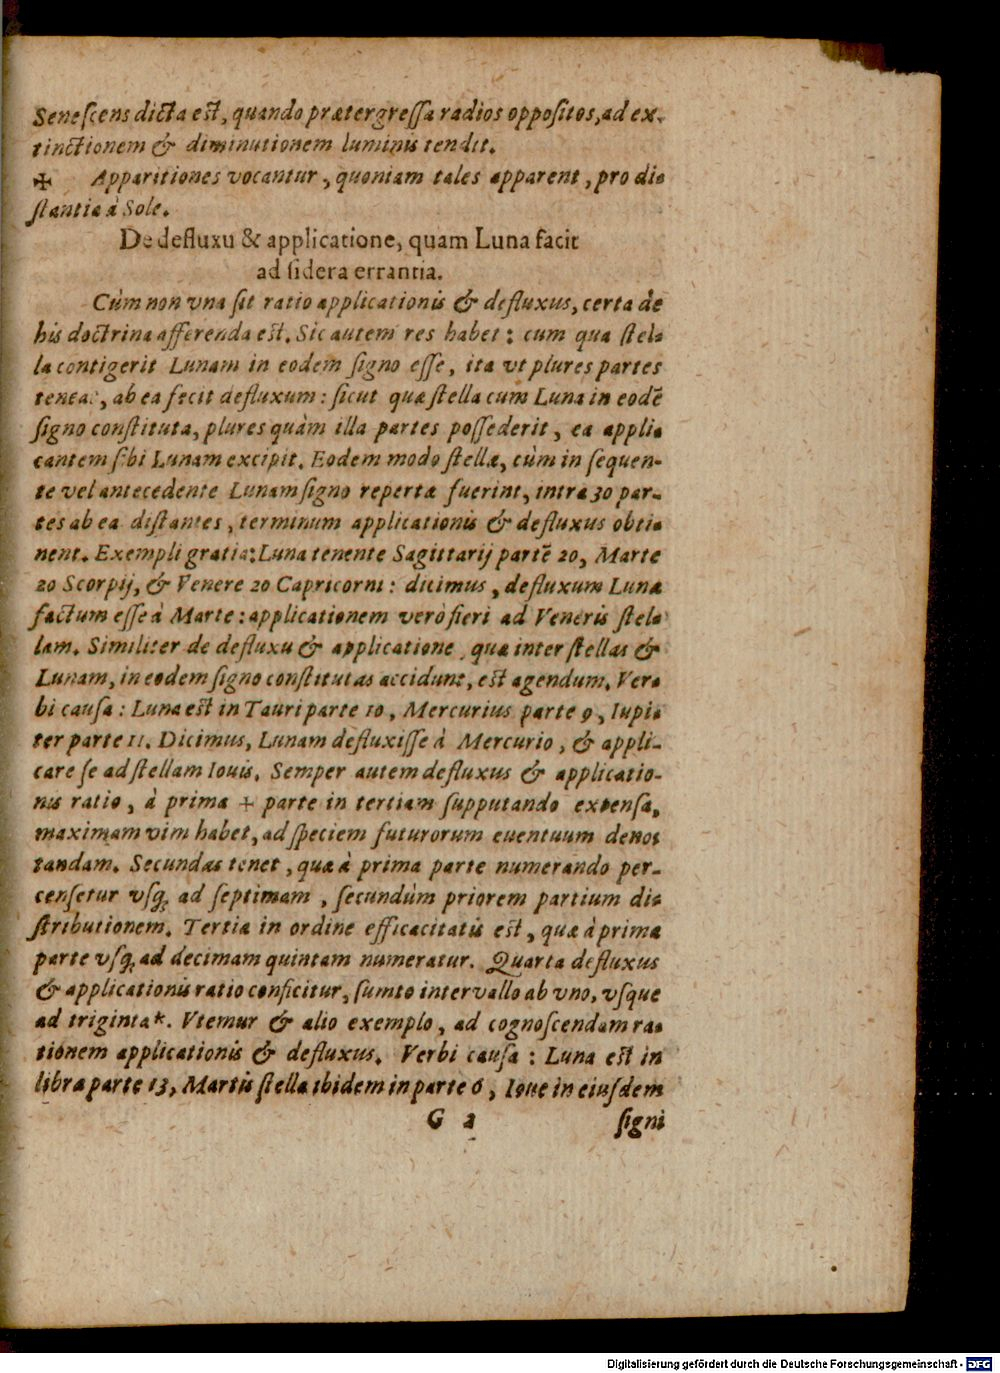 Senescens dicta est, quando prætergressa radios oppositos, ad ex-
tinctionem & diminutionem luminis tendit.
✠ Apparitiones vocantur, quoniam tales apparent, pro di-
stantia à Sole.
De defluxu & applicatione, quam Luna facit
ad sidera errantia.
Cùm non vna sit ratio applicationis & defluxus, certa de
his doctrina afferenda est. Sic autem res habet: cum qua stel-
la contigerit Lunam in eodem signo esse, ita vt plures partes
teneat, ab ea fecit defluxum: sicut quæ stella cum Luna in eodē
signo constituta, plures quàm illa partes possederit, ea appli-
cantem sibi Lunam excipit. Eodem modo stellæ, cùm in sequen-
te vel antecedente Lunam signo repertæ fuerint, intra 30 par-
tes ab ea distantes, terminum applicationis & defluxus obti-
nent. Exempli gratia: Luna tenente Sagittarij partē 20, Marte
20 Scorpij, & Venere 20 Capricorni: dicimus, defluxum Lunæ
factum esse à Marte: applicationem verò fieri ad Veneris stel-
lam. Similiter de defluxu & applicatione, quæ inter stellas &
Lunam, in eodem signo constitutas accidunt, est agendum. Ver-
bi causa: Luna est in Tauri parte 10, Mercurius parte 9, Iupi-
ter parte 11. Dicimus, Lunam defluxisse à Mercurio, & appli-
care se ad stellam Iouis. Semper autem defluxus & applicatio-
nis ratio, à prima + parte in tertiam supputando expensa,
maximam vim habet, ad speciem futurorum euentuum deno-
tandam. Secundas tenet, quæ à prima parte numerando per-
censetur vsq; ad septimam, secundùm priorem partium di-
stributionem. Tertia in ordine efficacitatis est, quæ à prima
parte vsq; ad decimam quintam numeratur. Quarta defluxus
& applicationis ratio conficitur, sumto interuallo ab vno, vsque
ad triginta*. Vtemur & alio exemplo, ad cognoscendam ra-
tionem applicationis & defluxus. Verbi causa: Luna est in
libra parte 13, Martis stella ibidem in parte 6, Ioue in eiusdem
G 2 signi
Digitalisierung gefördert durch die Deutsche Forschungsgemeinschaft - DFG